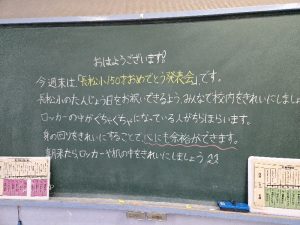 おはようございます。
今週末は、「長松小150才おめでとう発表会」です。
長松小のたん生う日をお祝いできるよう、みんなで校内をきれいにしましょ
ロッカーの中がぐちゃぐちゃになっている人がちらほらいます。
身の回りをきれいにすることで、心にも余裕ができます。
朝来たらロッカーや机の中をきれいにしましょう